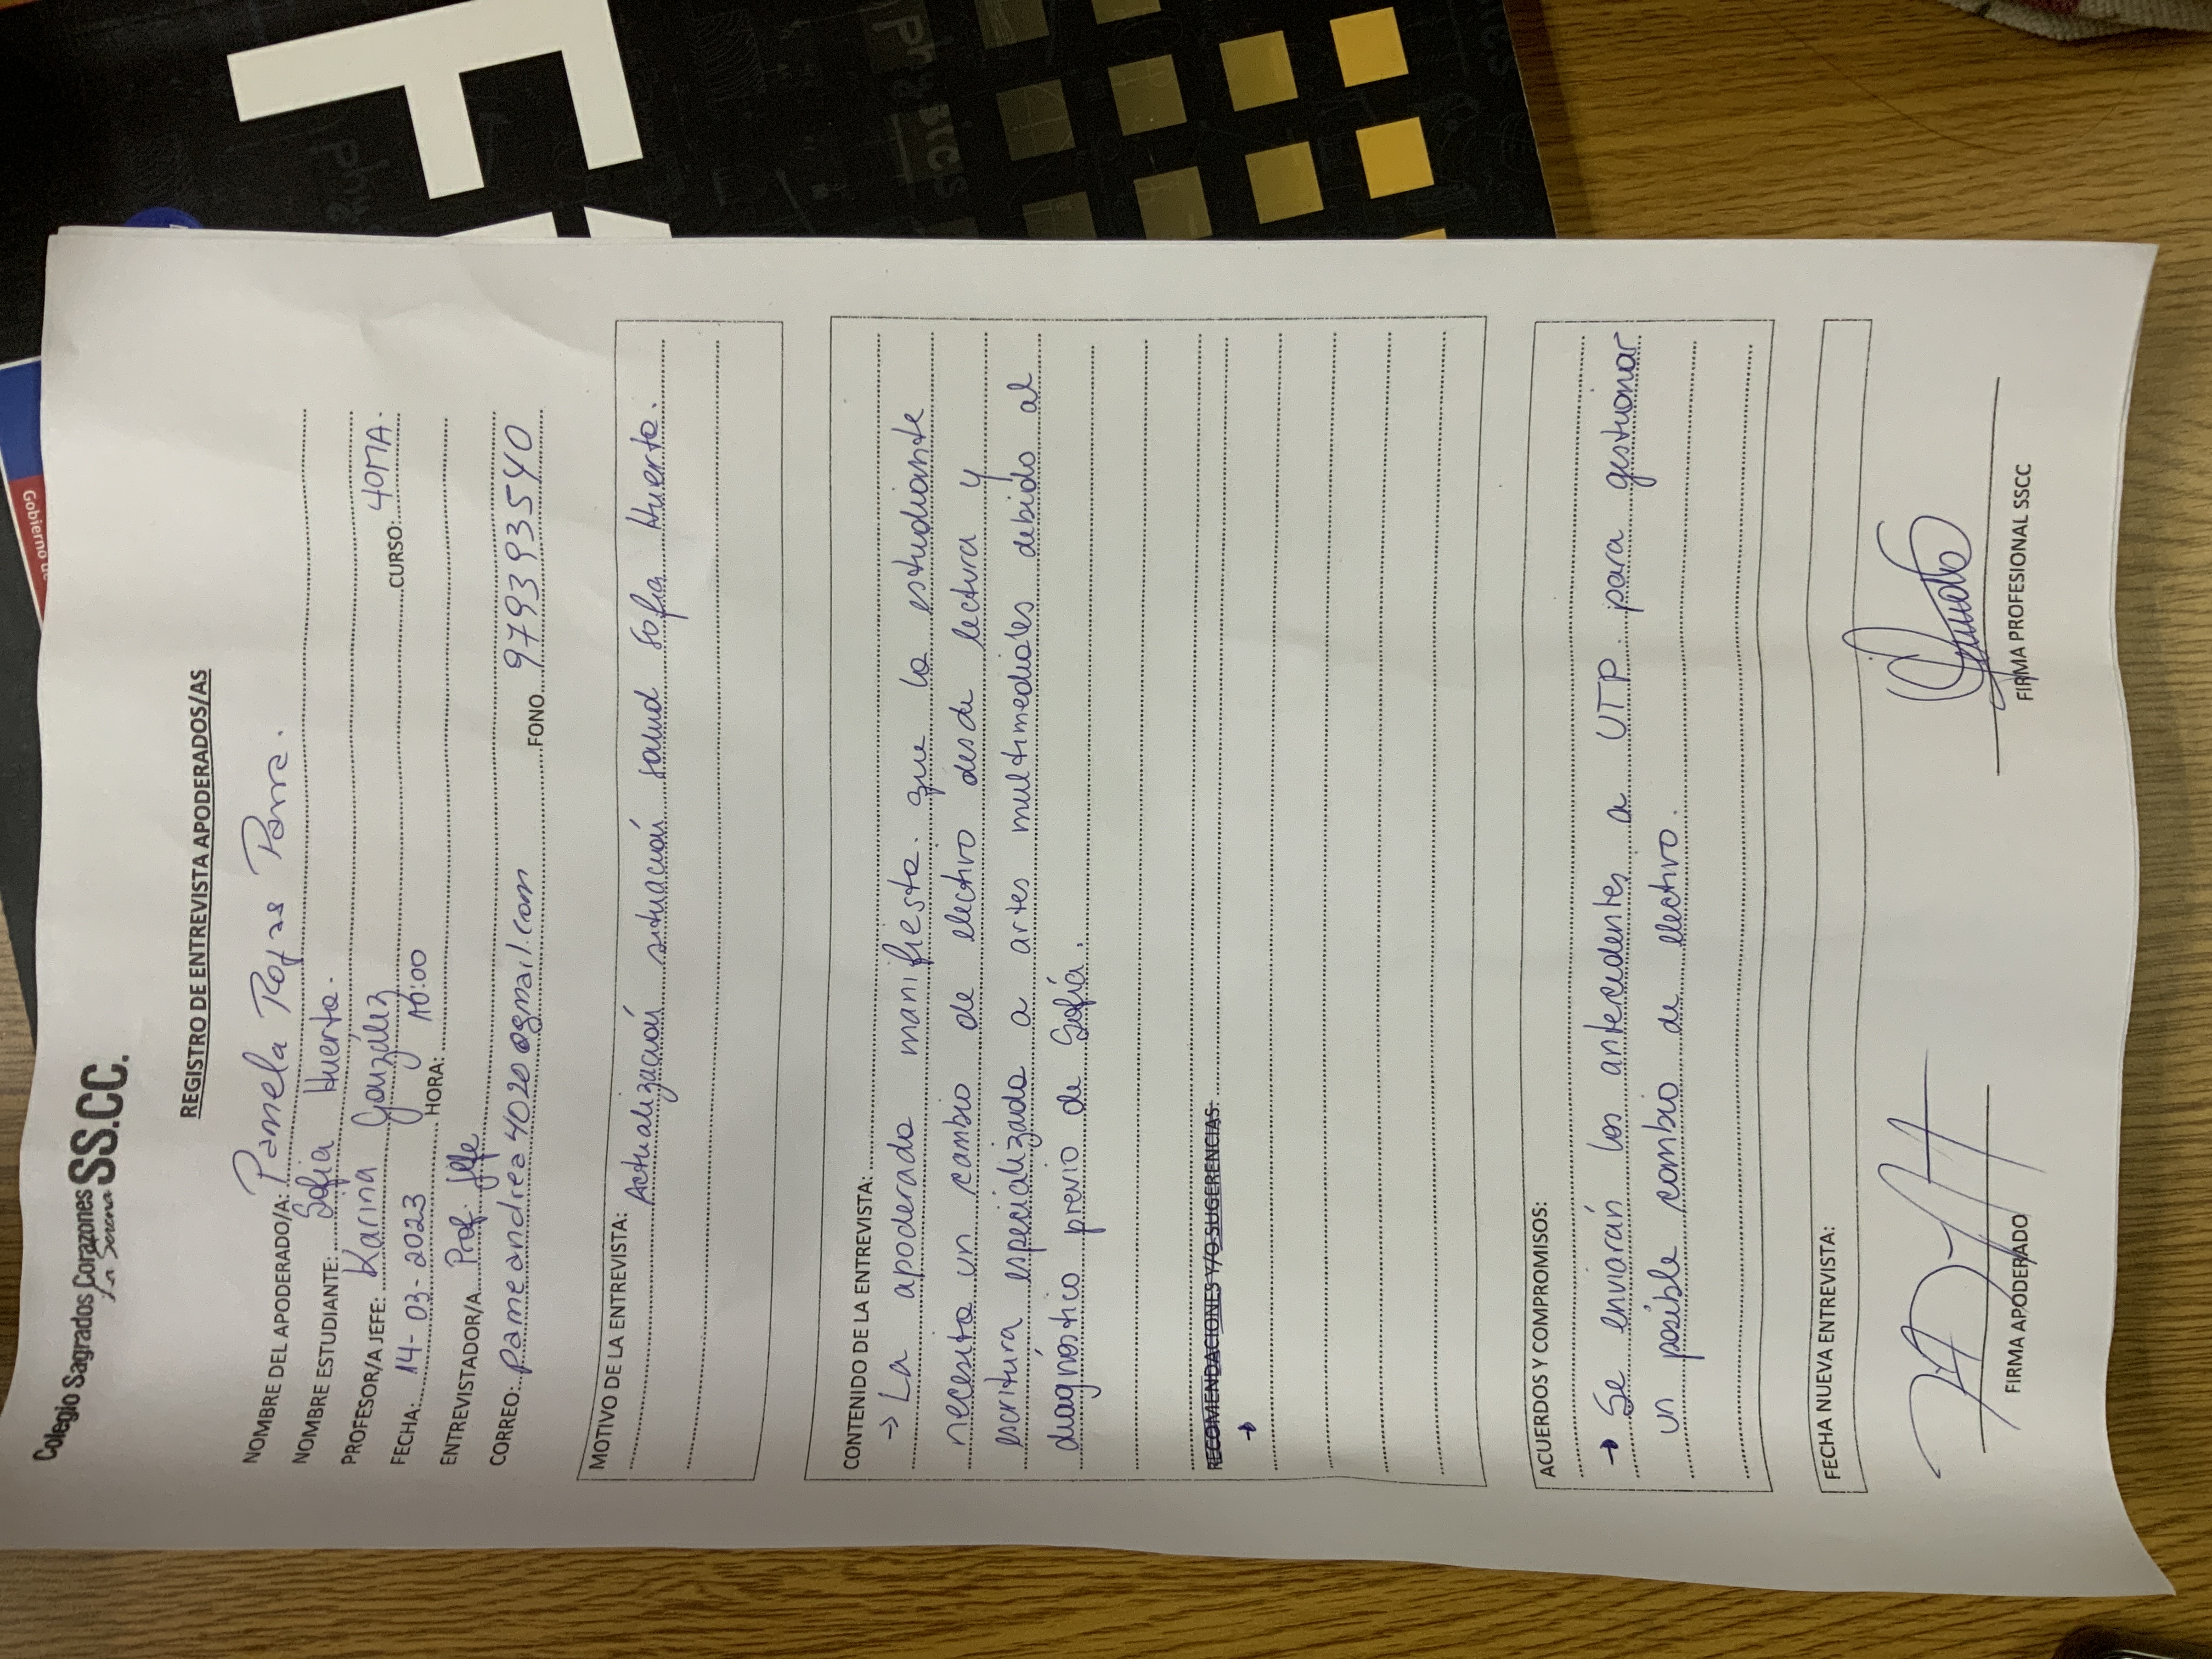 Colegio Sagrados Corazones SS.CC.
La Serena
REGISTRO DE ENTREVISTA APODERADOS/AS
NOMBRE DEL APODERADO/A: Pamela Rojas Parra.
NOMBRE ESTUDIANTE: Sofia Huerta.
PROFESOR/A JEFE: Karina González CURSO: 4ºMA.
FECHA: 14-03-2023 HORA: 16:00
ENTREVISTADOR/A Prof. Jefe
CORREO: pameandrea4020@gmail.com FONO 979393540
MOTIVO DE LA ENTREVISTA:
Actualización situación salud Sofia Huerta.
CONTENIDO DE LA ENTREVISTA:
→ La apoderada manifiesta que la estudiante
necesita un cambio de electivo desde lectura y
escritura especializada a artes multimediales debido al
diagnóstico previo de Sofía.
RECOMENDACIONES Y/O SUGERENCIAS:
→
ACUERDOS Y COMPROMISOS:
→ Se enviarán los antecedentes a UTP para gestionar
un posible cambio de electivo.
FECHA NUEVA ENTREVISTA:
FIRMA APODERADO
FIRMA PROFESIONAL SSCC
Gobierno de